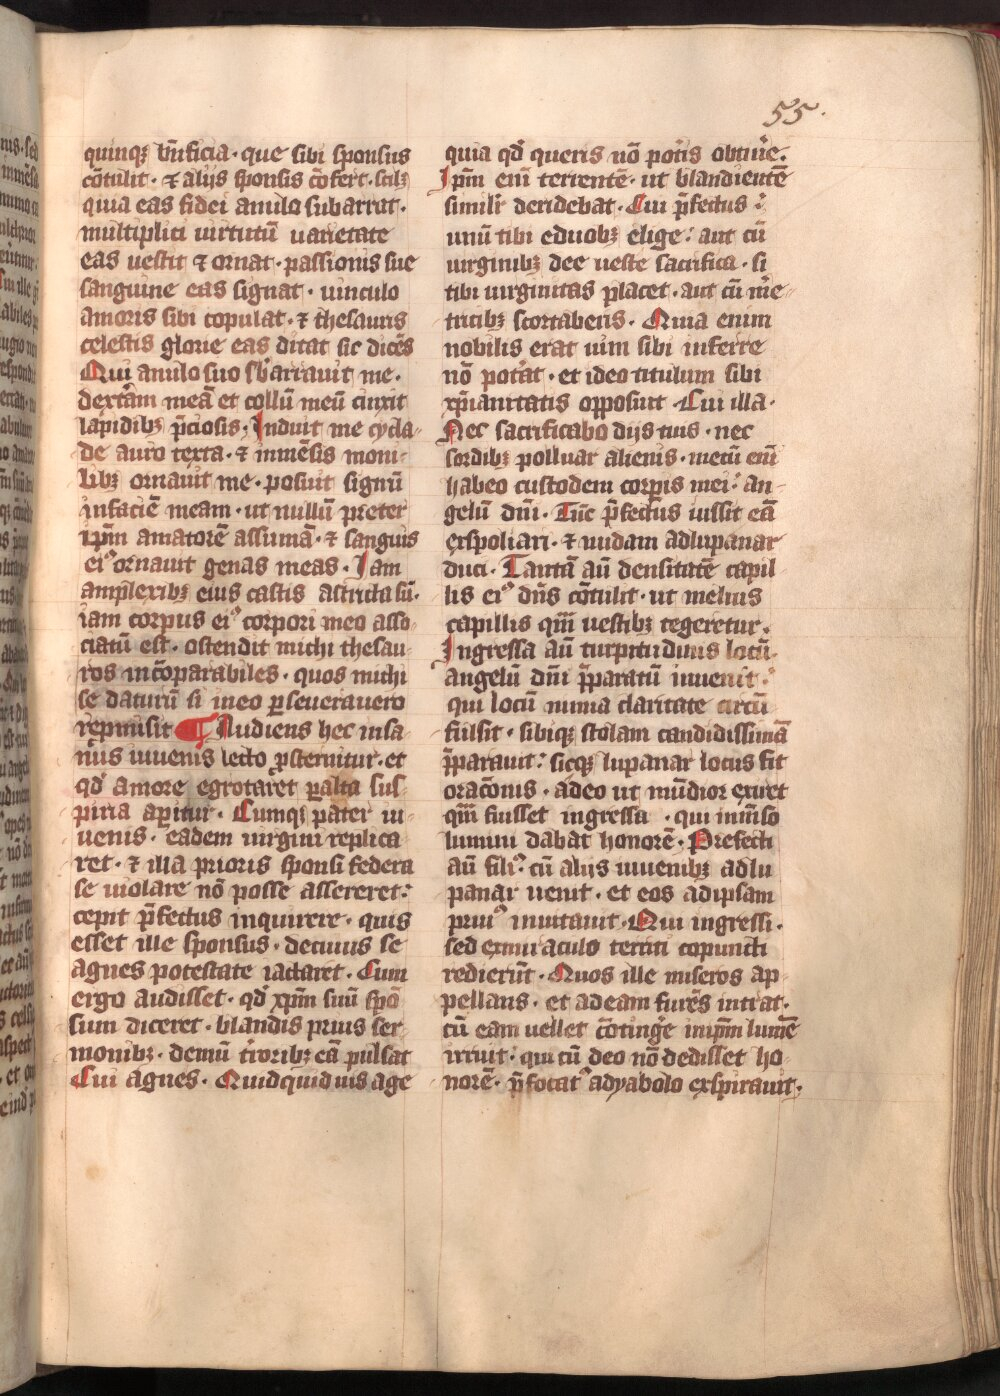 55.
quinqꝫ bn̄ficia · que sibi sponsus
cōtulit · ⁊ alijs sponsis cōfert · scilꝫ
quia eas fidei anulo subarrat ·
multiplici uirtutū uarietate
eas uestit ⁊ ornat · passionis sue
sanguine eas signat · uinculo
amoris sibi copulat · ⁊ thesauris
celestis glorie eas ditat sic dicēs
Qui anulo suo sb̄arrauit me ·
dextrām meā et collū meū cinxit
lapidibꝫ p̄ciosis · Induit me cycla-
de auro texta · ⁊ inmēsis moni-
libꝫ ornauit me · posuit signū
infaciē meam · ut nullū preter
ip̄m amatorē assumā · ⁊ sanguis
eiꝰ ornauit genas meas · Jam
amplexibꝫ eius castis astricta sū ·
iam corpus eiꝰ corpori meo asso-
ciatū est · ostendit michi thesau-
ros incōparabiles · quos michi
se daturū si ineo ꝑseuerauero
repmisit ¶ Audiens hec insa-
nus iuuenis lecto ꝓsternitur · et
qd̄ amore egrotaret ꝑalta sus-
piria aꝑitur · Cumqꝫ pater iu-
uenis · eadem uirgini replica
ret · ⁊ illa prioris sponsi federa
se uiolare nō posse assereret :
cepit p̄fectus inquirere · quis
esset ille sponsus · decuius se
agnes potestate iactaret · Cum
ergo audisset · qd̄ xp̄m suū spō
sum diceret · blandis prius ser
monibꝫ · demū t̄roribꝫ eā pulsat
Cui agnes · Quidquid uis age
quia qd̄ queris nō pot̄is obtin̄e ·
Ip̄m eni terrentē · ut blandientē
similir̄ deridebat · Cui p̄fectus :
unū tibi eduobꝫ elige : aut cū
uirginibꝫ dee ueste sacrifica · si
tibi uirginitas placet · aut cū me̅-
tricibꝫ scortaberis · Quia enim
nobilis erat uim sibi inferre
nō pot̄at · et ideo titulum sibi
xp̄ianitatis opposuit · Cui illa ·
Nec sacrificabo dijs tuis · nec
sordibꝫ polluar alienis · mecū eni̅
habeo custodem corꝑis mei : an-
gelū dn̄i · Tūc p̄fectus iussit eā
exspoliari · ⁊ nudam adlupanar
duci · Tantā aū densitatē capil-
lis eiꝰ dn̄s cōtulit · ut melius
capillis qm̄ uestibꝫ tegeretur ·
Ingressa aū turpitudinis locū
angelū dn̄i p̄paratū inuenit :
qui locū nimia claritate circū
fulsit · sibiqꝫ stolam candidissimā
p̄parauit : sicqꝫ lupanar locus fit
orac̄onis · adeo ut mūdior exiret
qm̄ fuisset ingressa · qui inm̄so
lumini dabat honorē · Prefecti
aū filiꝰ cū alijs iuuenibꝫ adlu
panar uenit · et eos adipsam
priuꝰ inuitauit · Qui ingressi ·
sed exmiraculo territi copuncti
redierūt · Quos ille miseros ap-
pellans · et adeam furēs intrat ·
cū eam uellet cōtinge̅ inip̄m lumē
irruit · qui cū deo nō dedisset ho-
norē · p̄focatꝰ adyabolo exspirauit ·